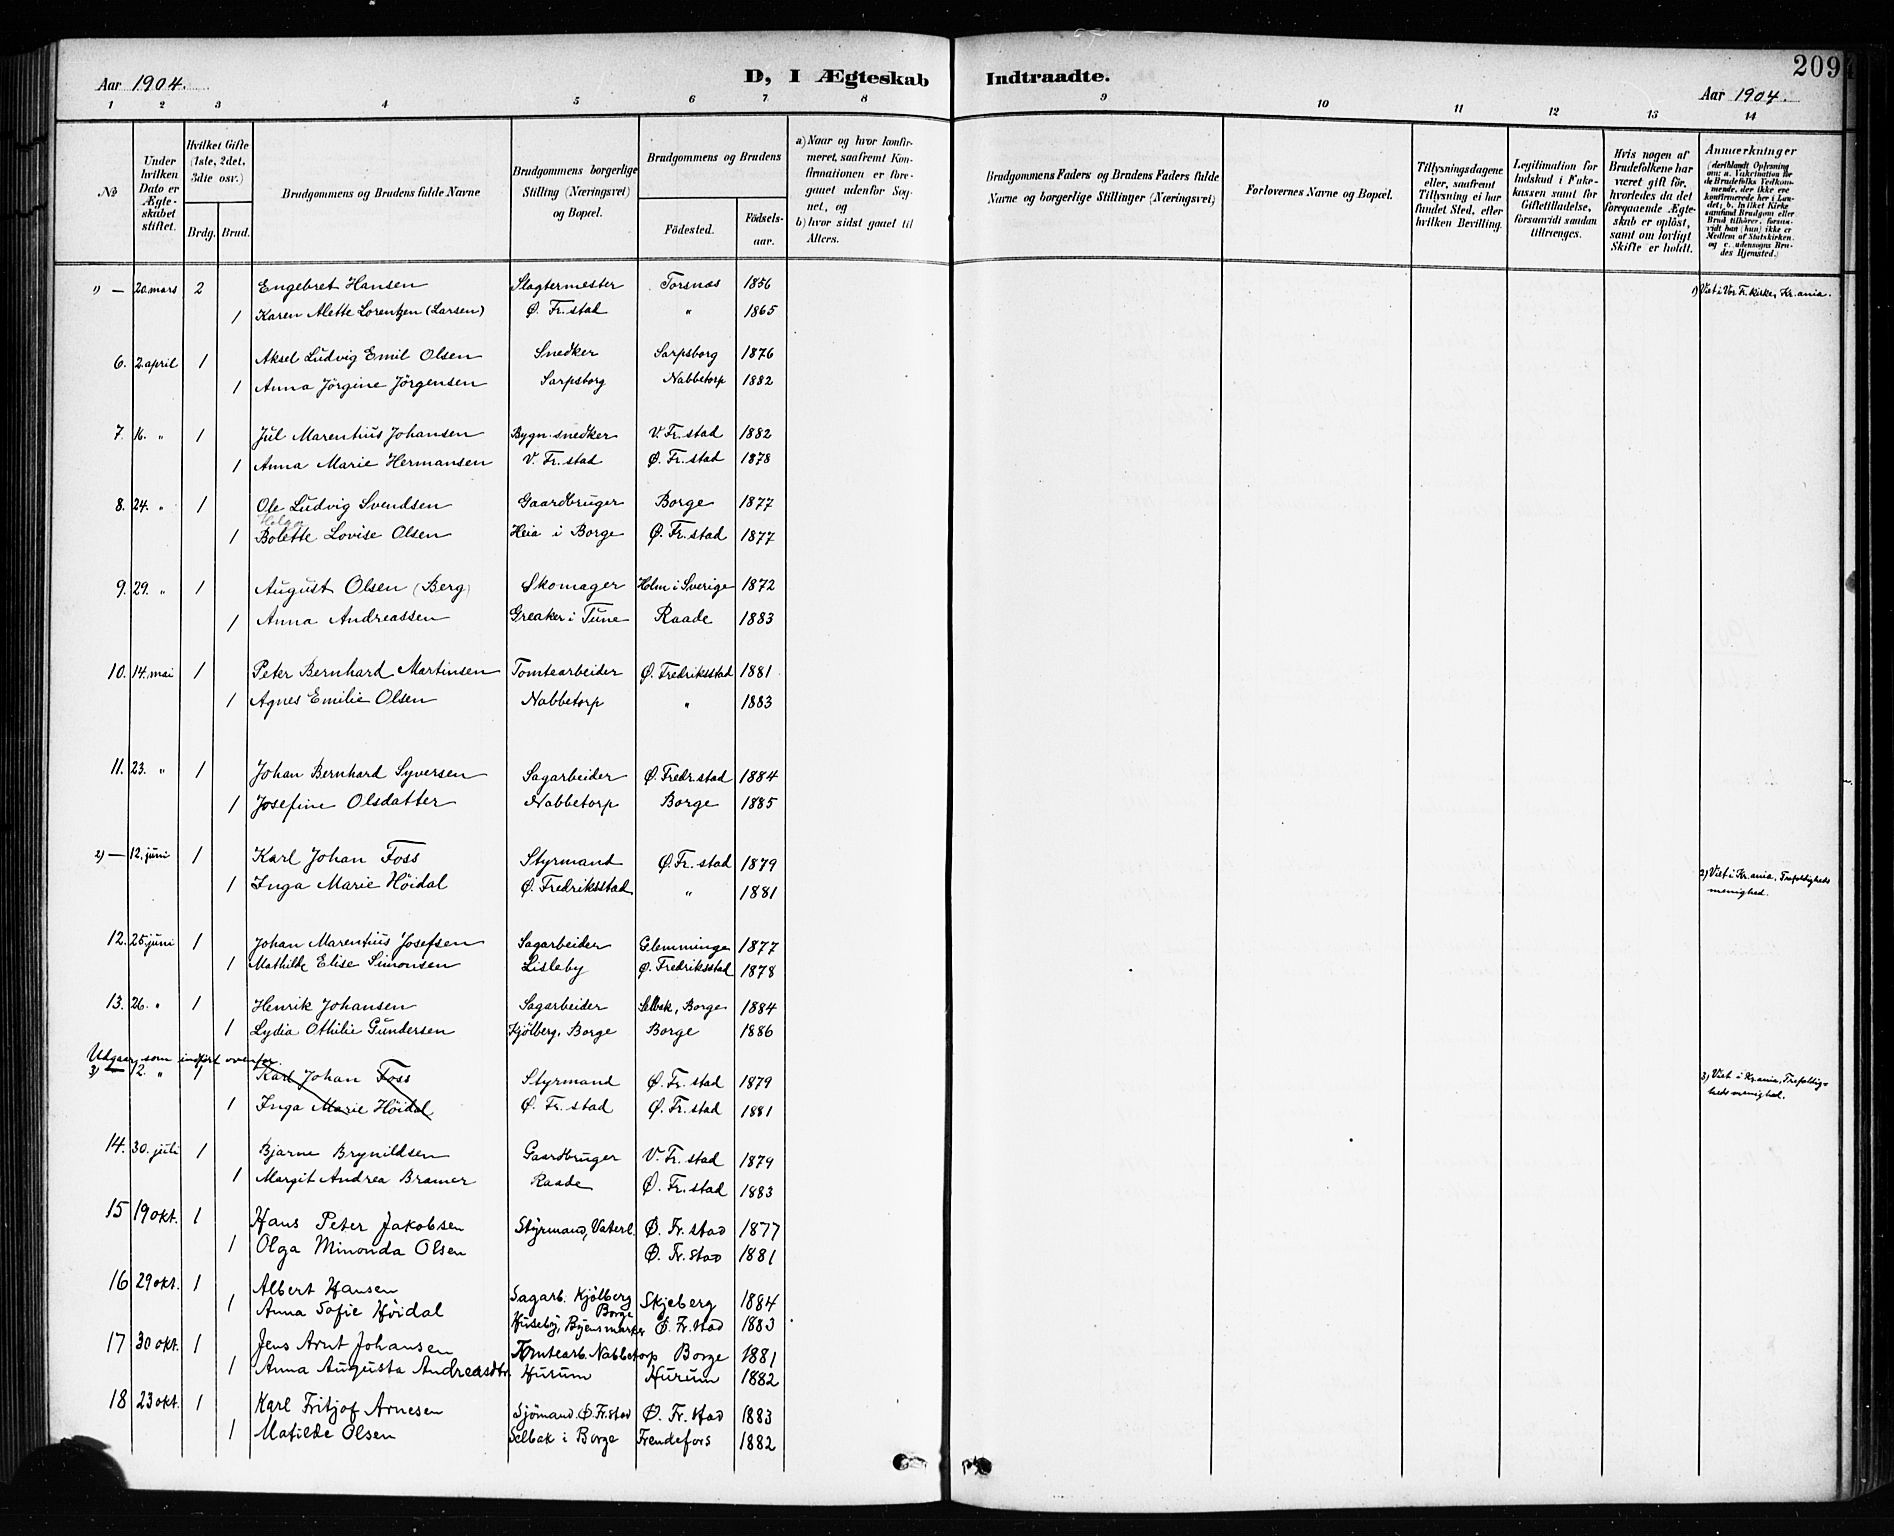 209
Aar 1904.
D, I Ægteskab Indtraadte.
Aar 1904.
1 2 3 4 5 6 7 8 9 10 11 12 13 14
No
Under hvilken Dato er Ægteskabet stiftet.
Hvilket Gifte (1ste, 2det, 3die osv.)
Brdg. Brud.
Brudgommens og Brudens fulde Navne
Brudgommens borgerlige Stilling (Næringsvei) og Bopæl.
Brudgommens og Brudens
Födested.
Födselsaar.
a) Naar og hvor konfirmeret, saafremt Konfirmationen er foregaaet udenfor Sognet, og
b) hvor sidst gaaet til Alters.
Brudgommens Faders og Brudens Faders fulde Navne og borgerlige Stillinger (Næringsvei)
Forlovernes Navne og Bopæl.
Tillysningsdagene eller, saafremt Tillysning ei har fundet Sted, efter hvilken Bevilling.
Legitimation for Indskud i Enkekassen samt for Giftetilladelse, forsaavidt saadan tiltrænges.
Hvis nogen af Brudefolkene har været gift för, hvorledes da det foregaaende Ægteskab er oplöst, samt om lovligt Skifte er holdt.
Anmærkninger (deriblandt Oplysning om: a. Vakcination for de Brudefolks Vedkommende, der ikke ere konfirmerede her i Landet; b. hvilket Kirkesamfund Brudgom eller Brud tilhörer, forsaavidt han (hun) ikke er Medlem af Statskirken. og c. udensogns Brudes Hjemsted.)
1) — 20. mars 2 Engebret Hansen Slagtermester Torsnæs 1856 1) Viet i Vor Fr. kirke, Kr.ania.
1 Karen Alette Lorentzen (Larsen) Ø. Fr.stad " 1865
6. 2. april 1 Aksel Ludvig Emil Olsen Snedker Sarpsborg 1876
1 Anna Jörgine Jörgensen Sarpsborg Nabbetorp 1882
7. 16. " 1 Jul Marentius Johansen Bygn. snedker V. Fr. stad 1882
1 Anna Marie Hermansen V. Fr. stad Ø. Fr. stad 1878
8. 24. " 1 Ole Ludvig Svendsen Gaardbruger Borge 1877
Helga
1 Bolette Lovise Olsen Heia i Borge Ø. Fr. stad 1877
9. 29. " 1 August Olsen (Berg) Skomager Holm i Sverige 1872
1 Anna Andreassen Greaker i Tune Raade 1883
10. 14. mai 1 Peter Bernhard Martinsen Tomtearbeider Ø. Fredriksstad 1881
1 Agnes Emilie Olsen Nabbetorp " 1883
11. 23. " 1 Johan Bernhard Syversen Sagarbeider Ø. Fredr.stad 1884
1 Josefine Olsdatter Nabbetorp Borge 1885
2) — 12. juni 1 Karl Johan Foss Styrmand Ø. Fr. stad 1879
1 Inga Marie Höidal Ø. Fredriksstad " 1881 2) Viet i Kr.ania, Trefoldigheds
menighed.
12. 25. juni 1 Johan Marentius Josefsen Sagarbeider Glemminge 1877
1 Mathilde Elise Simonsen Lisleby Ø. Fredriksstad 1878
13. 26. " 1 Henrik Johansen Sagarbeider Selbak, Borge 1884
1 Lydia Othilie Gundersen Kjölberg, Borge Borge 1886
Udgaar som indført ovenfor.
3) — 12. " 1 Karl Johan Foss Styrmand Ø. Fr. stad 1879 3) Viet i Kr.ania, Trefoldig-
hedsmenighed.
1 Inga Marie Höidal Ø. Fr. stad Ø. Fr. stad 1881
14. 30. juli 1 Bjarne Brynildsen Gaardbruger V. Fr. stad 1879
1 Margit Andrea Bramer Raade Ø. Fr. stad 1883
15 19 okt. 1 Hans Peter Jakobsen Styrmand, Vaterl. Ø. Fr. stad 1877
1 Olga Minonda Olsen Ø. Fr. stad 1881
16 29 okt. 1 Albert Hansen Sagarb. Kjölberg Borge Skjeberg 1884
1 Anna Sofie Höidal Huseby, Byens marker Ø. Fr. stad 1883
17 30 okt. 1 Jens Arnt Johansen Tomtearb. Nabbetorp Borge 1881
1 Anna Augusta Andreasdtr. Hurum Hurum 1882
18 23 okt. 1 Karl Fritjof Arnesen Sjömand. Ø. Fr.stad Ø. Fr. stad 1883
1 Matilde Olsen Selbak i Borge Frendefors 1882